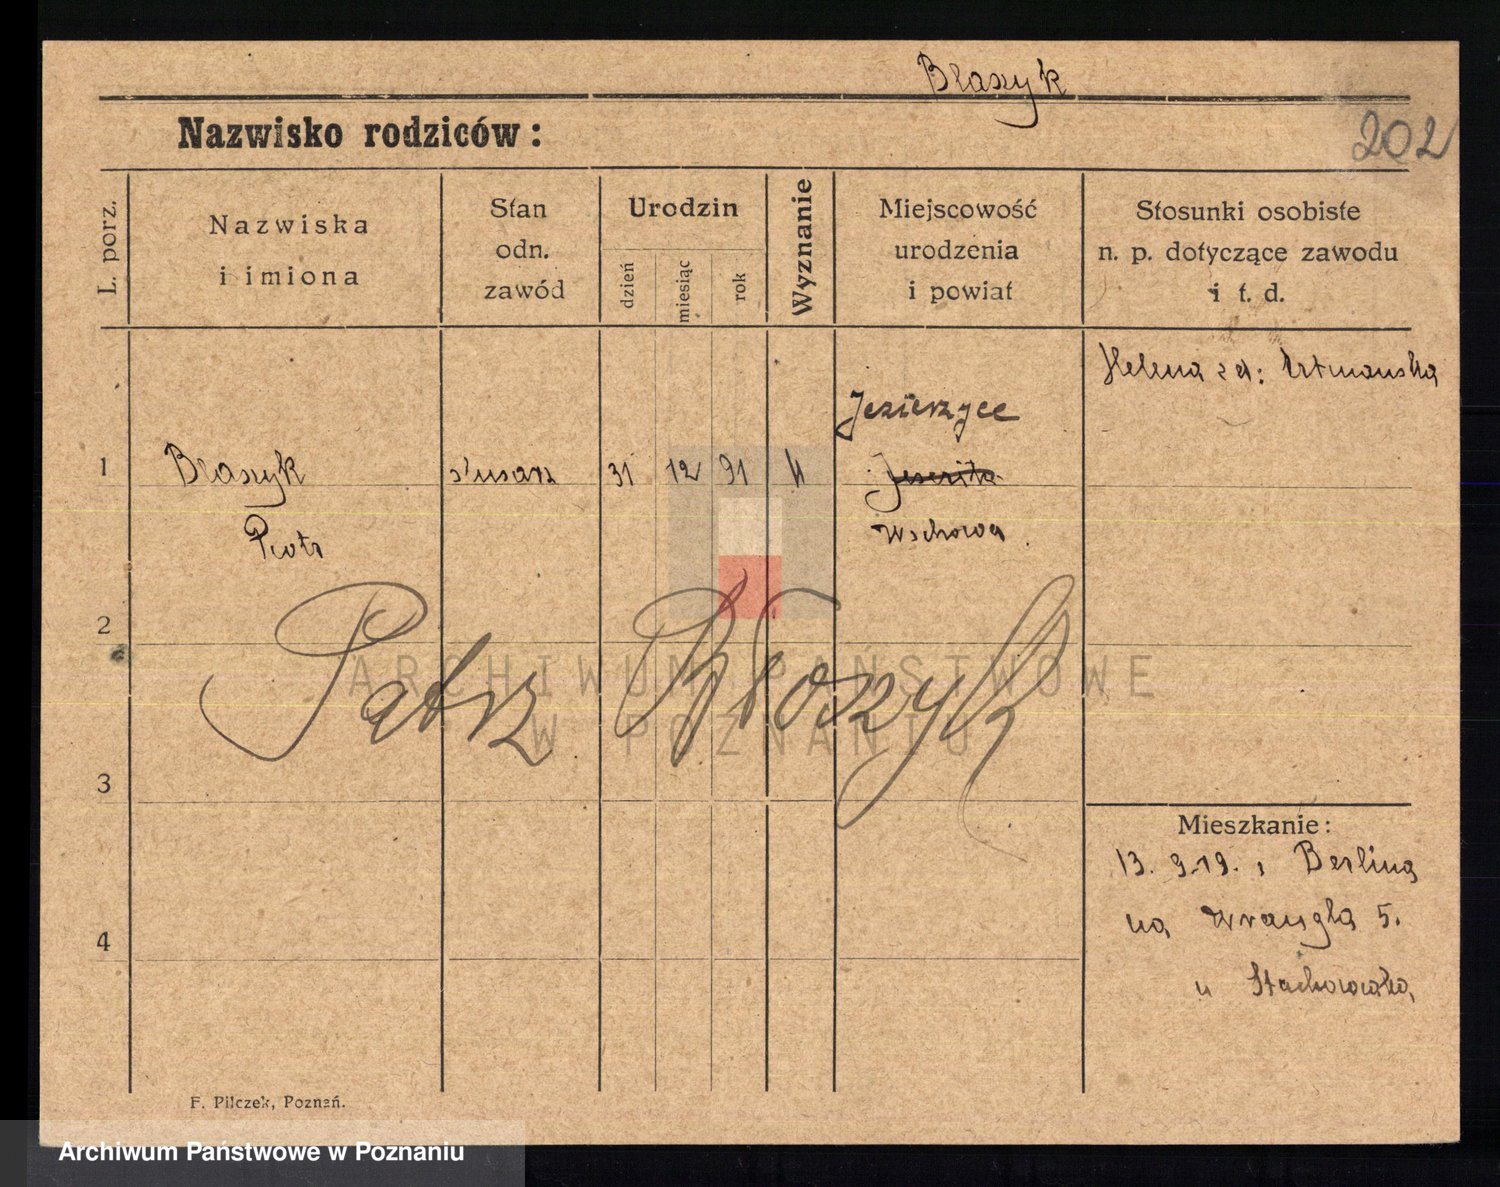 Blaszyk
Nazwisko rodziców:
202
L. porz.
Nazwiska
i imiona
Stan
odn.
zawód
Urodzin
dzień
miesiąc
rok
Wyznanie
Miejscowość
urodzenia
i powiat
Stosunki osobiste
n. p. dotyczące zawodu
i t. d.
Helena
Jezierzyce
1
Blaszyk
ślusarz
31
12
91
Piotr
Wschowa
2
Patrz Błoszyk
ARCHIWUM PAŃSTWOWE
W POZNANIU
3
Mieszkanie:
13. 9.19. z Berlina
na Wrangla 5.
u Stachowiaka
4
F. Pilczek, Poznań.
Archiwum Państwowe w Poznaniu